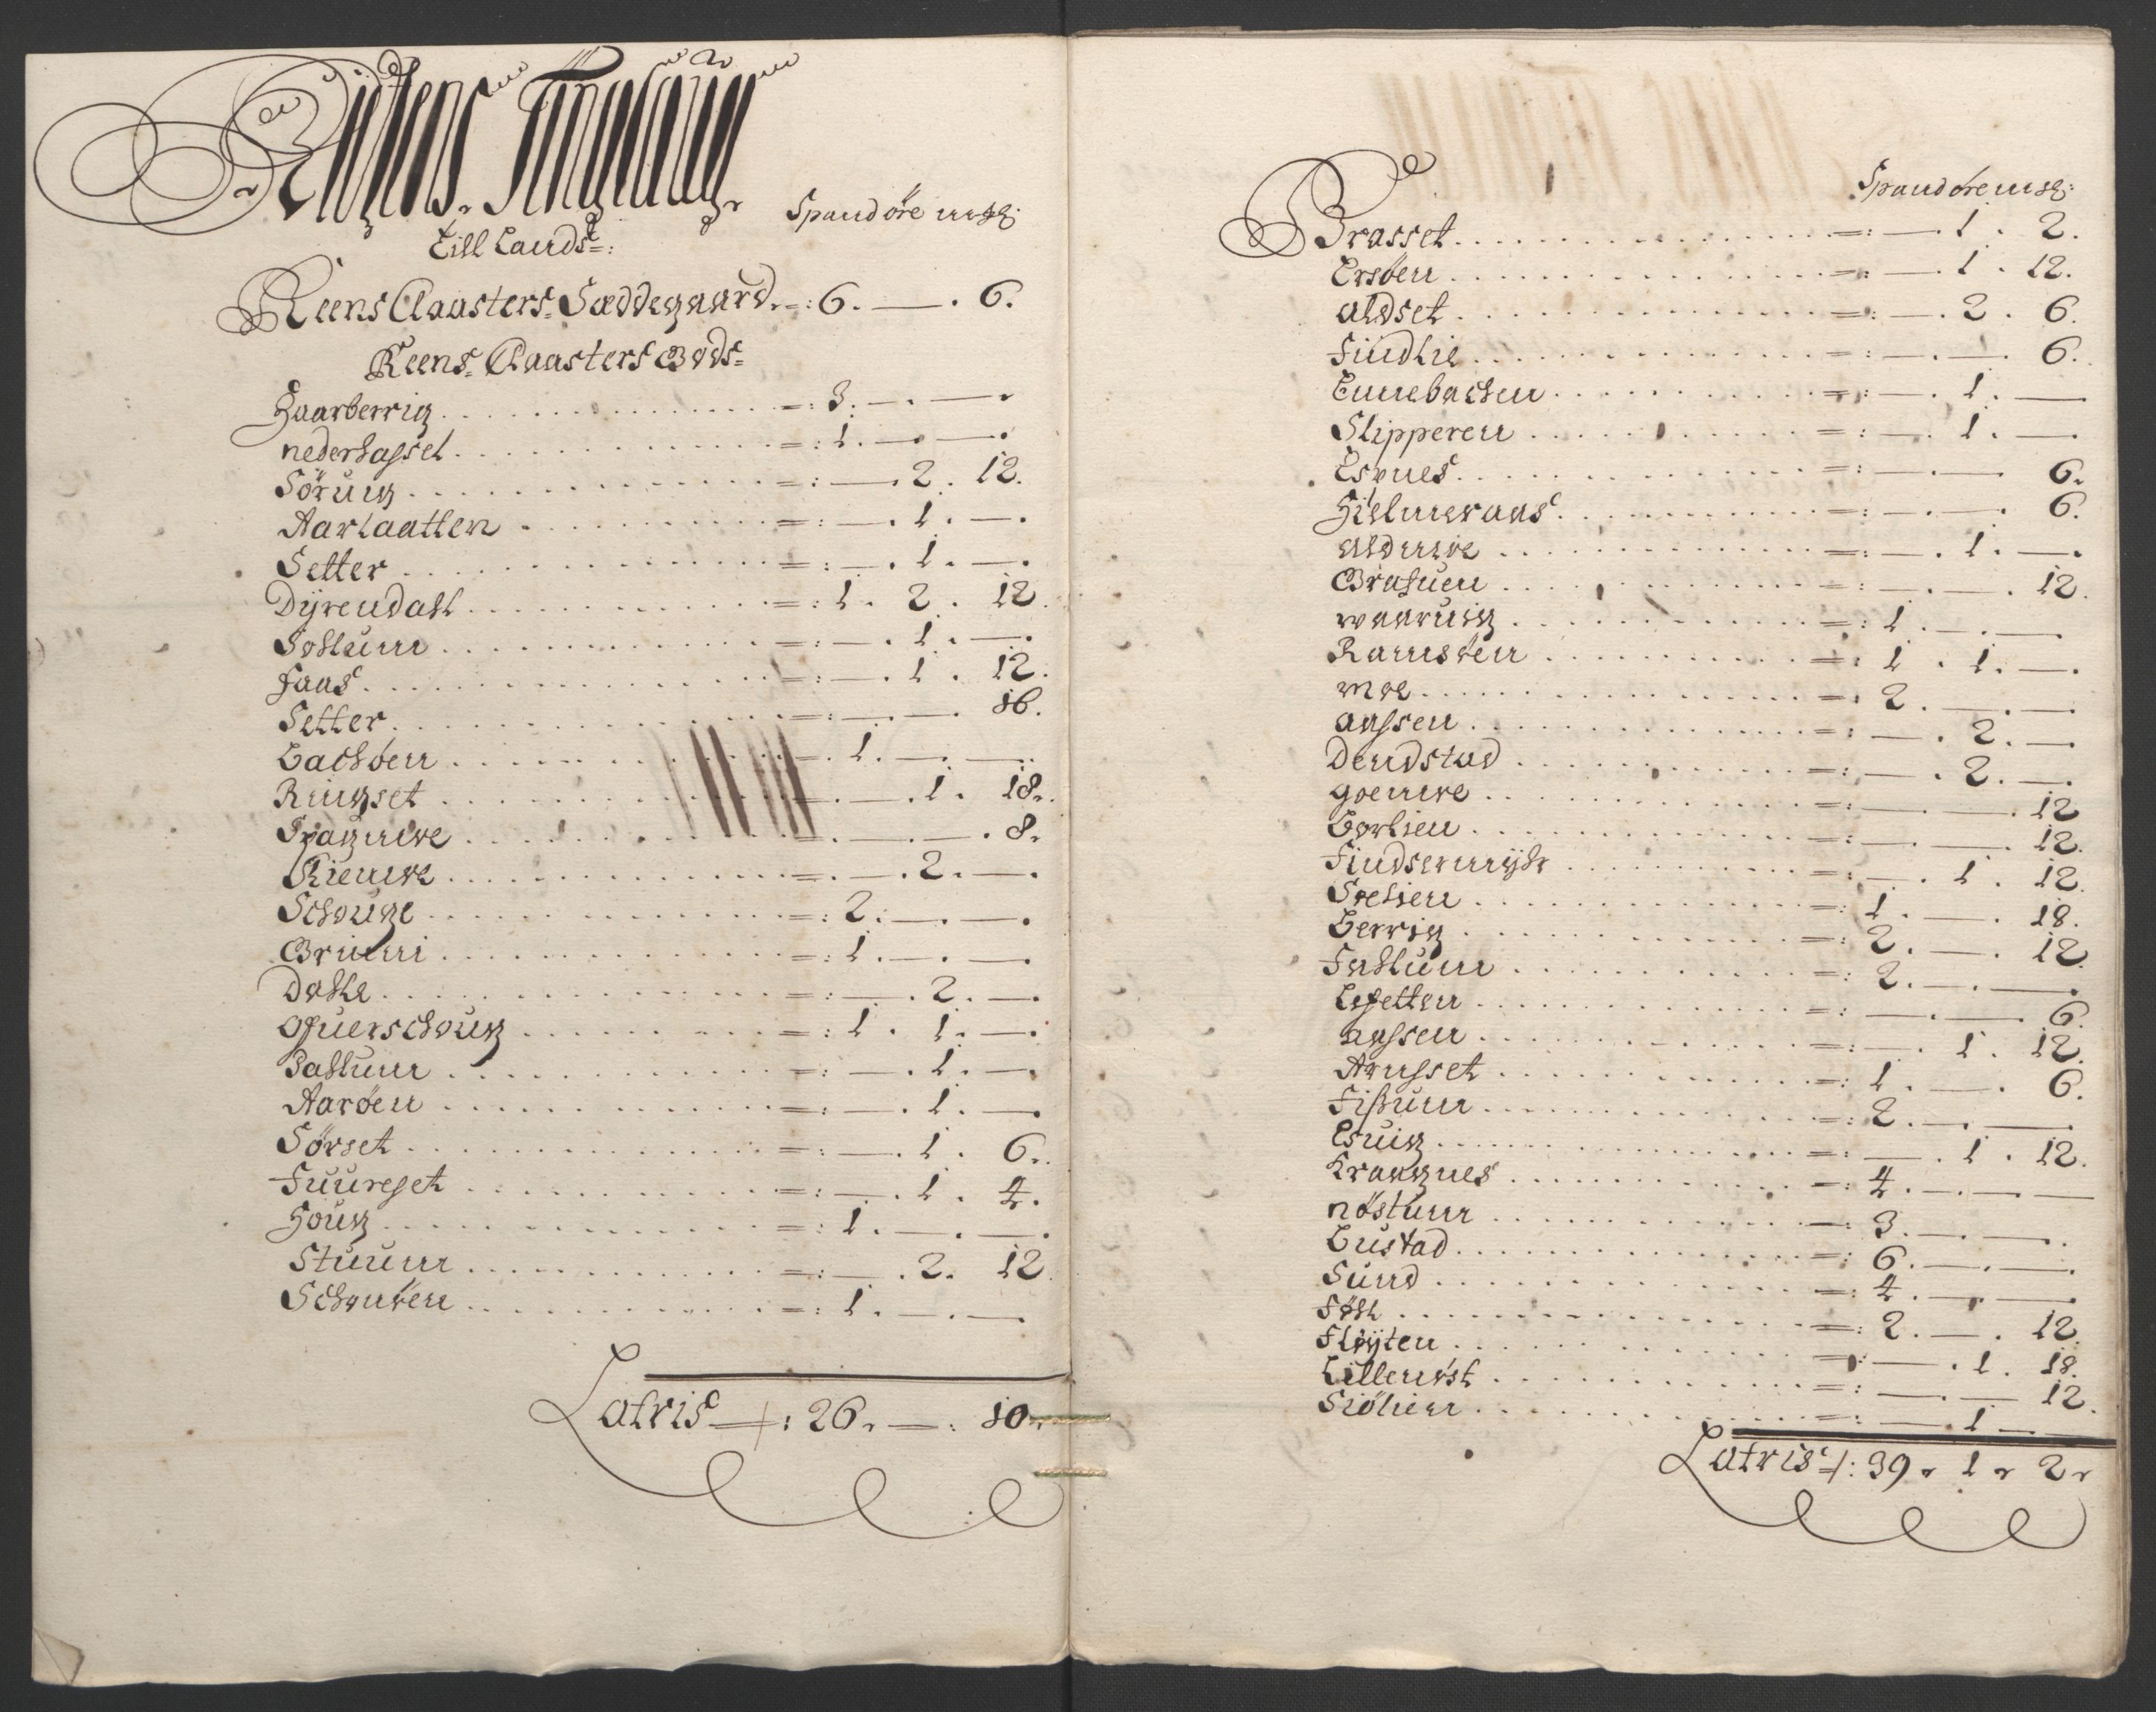 Rissens Tinglaug
Till Lands
Spand öre mske
Reens Claasters Sæddegaard =: 6. — . 6.
Reens Claasters Gods
Haarberrig =: 3. — . —
nederhassel =: 1. — . —
Söruig =: — . 2. 12.
Aarlaatten =: — . 1. —
Setter =: — . 1. —
Dyrendahl =: 1. 2. 12.
Sollum =: — . 1. —
Faas =: — . 1. 12.
Setter =: — . — . 16.
Bachöen =: 1. — . —
Ringset =: — . 1. 18.
Spagmoe =: — . — . 8.
Riemoe =: — . 2. —
Schouge =: 2. — . —
Griimi =: 1. — . —
Dahle =: — . 2. —
Ofuerschoug =: 1. 1. —
Dahlum =: — . 1. —
Aaröen =: — . 1. —
Sörset =: — . 1. 6.
Fuureset =: — . 1. 4.
Houg =: 1. — . —
Stuum =: — . 2. 12.
Schouröen =: 1. — . —
Latris : 26. — : 10.
Spand öre mske
Brasset =: — . 1. 2.
Ersöen =: — . 1. 12.
aldset =: — . 2. 6.
Findlie =: — . — . 6.
Ennebachen =: — . 1. —
Slipperen =: — . 1. —
Esnues =: — . — . 6.
Hielmeraas =: — . — . 6.
Aldemoe =: — . 1. —
Grafuen =: — . — . 12.
waaruig =: 1. — . —
Ramsöen =: 1. 1. —
moe =: 2. — . —
aassen =: — . 2. —
Dendstad =: — . 2. —
goemoe =: — . — . 12
Borlien =: — . — . 12.
Findsermyhr =: — . 1. 12.
Sæelien =: 1. — . 18.
Berrig =: 2. — . 12.
Fahlum =: 2. — . —
=: — . — . 6.
aassen =: — . 1. 12.
Arnsset =: 1. — . 6.
Fissum =: 2. — . —
Esuig =: — . 1. 12.
Kraagnes =: 4. — . —
nöstum =: 3. — . —
Bustad =: 6. — . —
Sund =: 4. — . —
Föhl =: 2. — . 12.
Fløyten =: — . 1. 18.
=: — . — 12.
Siölien =: — . 1 —
Latris : 39. 1. 2.